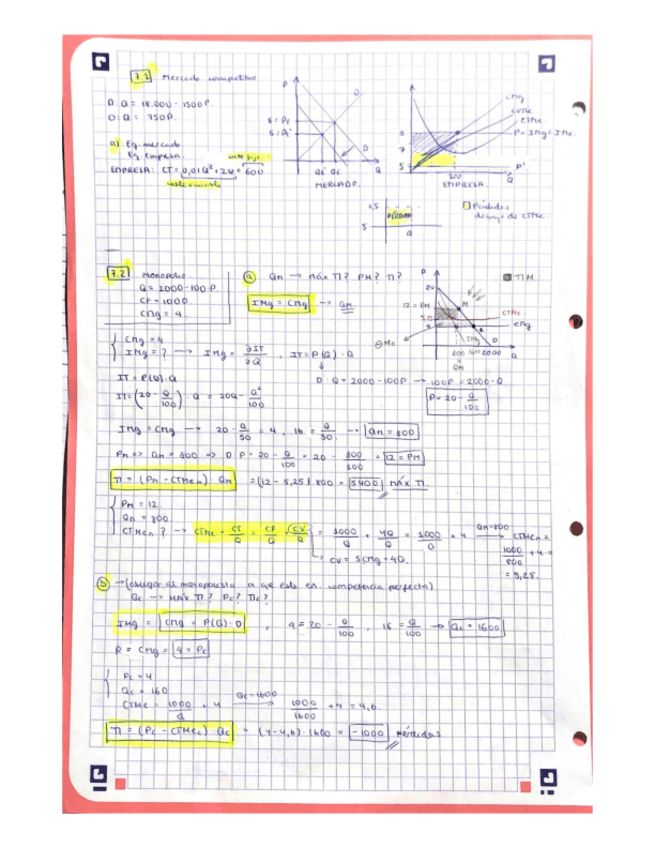 7.1 Mercado competitivo
D: Q = 18.000 - 1500P.
O: Q = 750P.
a) Eq. mercado
Eq. empresa.
coste fijo
EMPRESA: CT = 0,01Q² + 2Q + 600
coste variable
P
O
8 = Pe
D
Q
MERCADO.
CMg
CVMe
CTMe
P = IMg = IMe.
8
7
5
P'
Q
EMPRESA.
7,5
5
Q
Pérdidas
debajo de CTMe.
7.2 Monopolio
Q = 2000 - 100·P.
CF = 1000
CMg = 4.
a) Qm → máx π? PM? π?
IMg = CMg → Qm
P
20
12 = PM
4
M
CTMe
CMg
IMg
D
Q
800
QM
CMg = 4
IMg = ? → IMg = ∂IT/∂Q , IT = P(Q) · Q
D: Q = 2000 - 100P → 100P = 2000 - Q
P = 20 - Q/100
IT = P(Q)·Q
IT = (20 - Q/100) · Q = 20Q - Q²/100
IMg = CMg → 20 - Q/50 = 4, 16 = Q/50 → Qm = 800
Pm => Qm = 800 → D P = 20 - Q/100 = 20 - 800/100 = 12 = PM
π = (Pm - CTMem) · Qm = (12 - 5,25) 800 = 5400 máx π.
Pm = 12
Qm = 800
CTMem? → CTMe = CT/Q = CF/Q + CV/Q = 1000/Q + 4Q/Q = 1000/Q + 4 Qm=800 → CTMem =
1000/800 + 4 =
= 5,25.
CV = ∫CMg = 4Q.
b) → (obligar al monopolista a que esté en competencia perfecta)
Qc → máx π? Pc? πc?
IMg = CMg = P(Q)·D , 4 = 20 - Q/100 , 16 = Q/100 → Qc = 1600
P = CMg = 4 = Pc
Pc = 4
Qc = 160
CTMc = 1000/Q + 4 Qc=1600 → 1000/1600 + 4 = 4,6.
π = (Pc - CTMec) Qc = (4 - 4,6) · 1600 = -1000 pérdidas